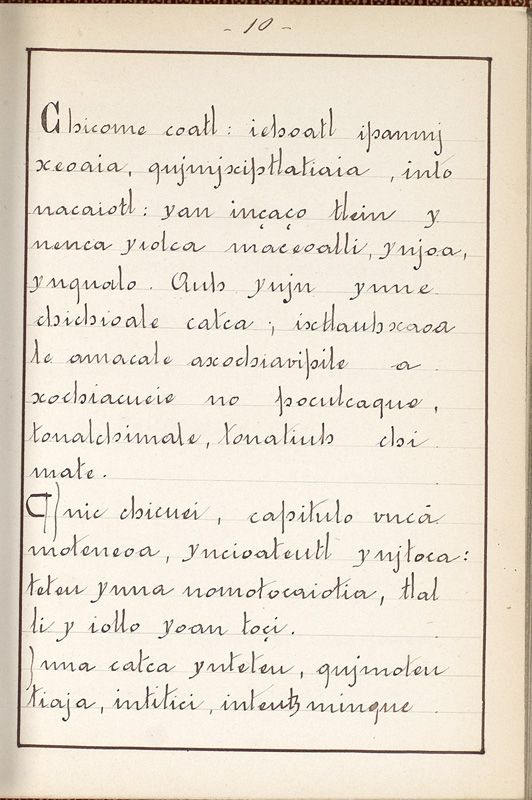 - 10 -
Chicome coatl: iehoatl ipanmj
xeoaia, qujmjxiptlatiaia, into
nacaiotl: yan inçaço tlein y
nenca yiolca maçeoalli, ynjoa,
ynqualo. Auh yujn ynne
chichioale catca; ixtlauhxaoa
le amacale axochiavipile a
xochiacueie no poculcaque,
tonalchimale, tonatiuh chi
male.
¶ Jnic chicuei, capitulo vncā
moteneoa, yncioateutl ynjtoca:
teteu ynna nomotocaiotia, tlal
li y iollo yoan toçi.
Jnna catca ynteteu, qujmoteu
tiaja, intitici, inteutzminque